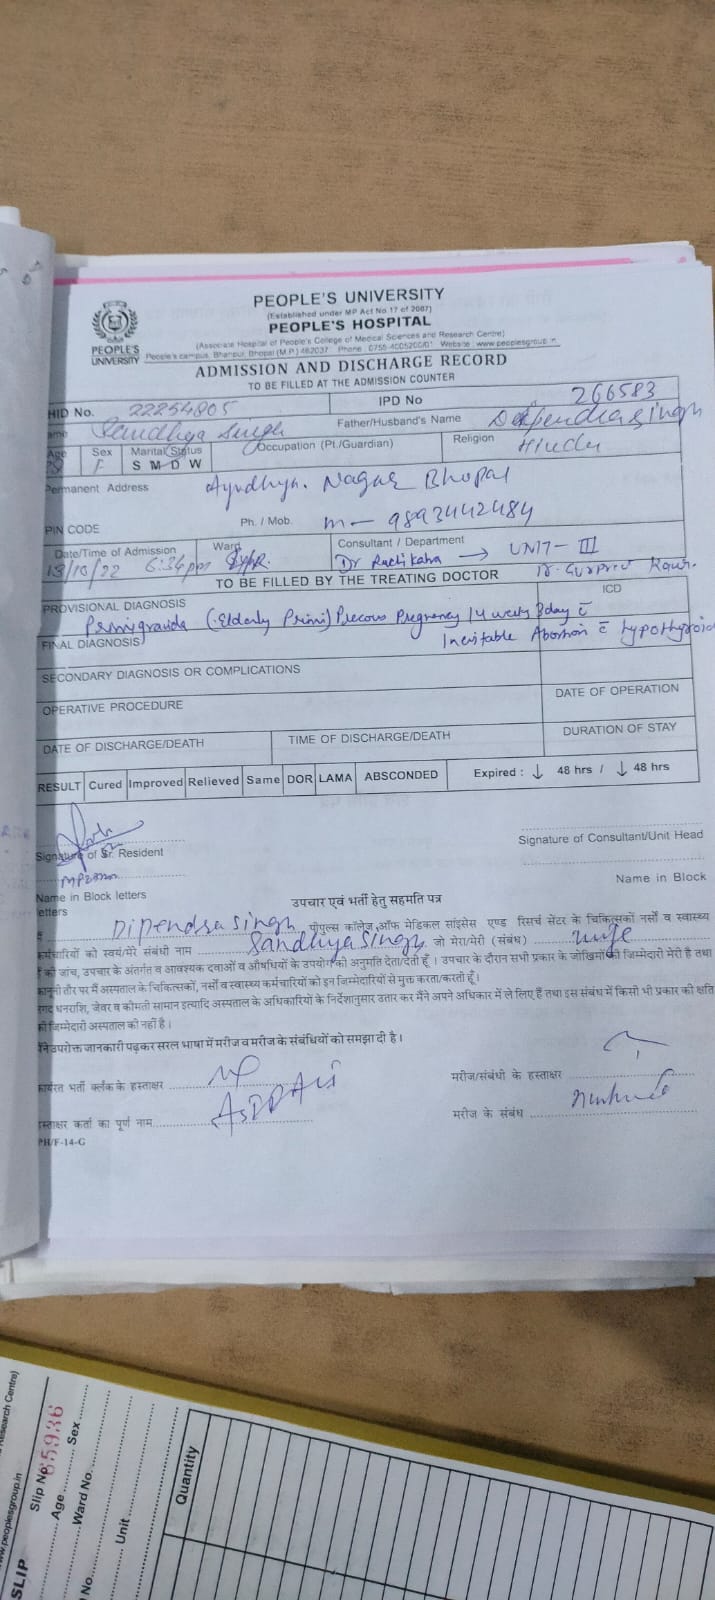 PEOPLE'S UNIVERSITY
(Established under MP Act No.17 of 2007)
PEOPLE'S HOSPITAL
(Associate Hospital of People's College of Medical Sciences and Research Centre)
PEOPLE'S UNIVERSITY
People's campus, Bhanpur, Bhopal (M.P.) 462037 Phone : 0755-4005200/01 Website : www.peoplesgroup.in
ADMISSION AND DISCHARGE RECORD
TO BE FILLED AT THE ADMISSION COUNTER
HID No. 22254805 IPD No 266583
ame Sandhya Singh Father/Husband's Name Deependra Singh
Age Sex F Marital Status S M D W Occupation (Pt./Guardian) Religion Hindu
Permanent Address Ayodhya. Nagar Bhopal
PIN CODE Ph. / Mob. m - 9893442484
Date/Time of Admission 13/10/22 6:34pm Ward Consultant / Department Dr Radhika → UNIT - III
Dr. Gurpreet Kaur.
TO BE FILLED BY THE TREATING DOCTOR
PROVISIONAL DIAGNOSIS ICD
Primigravida (Elderly Primi) Precious Pregnancy 14 weeks 3 day c̄
FINAL DIAGNOSIS Inevitable Abortion c̄ hypothyroid
SECONDARY DIAGNOSIS OR COMPLICATIONS
OPERATIVE PROCEDURE DATE OF OPERATION
DATE OF DISCHARGE/DEATH TIME OF DISCHARGE/DEATH DURATION OF STAY
RESULT Cured Improved Relieved Same DOR LAMA ABSCONDED Expired : ↓ 48 hrs / ↓ 48 hrs
Signature of Sr. Resident Signature of Consultant/Unit Head
Name in Block letters Name in Block
letters
उपचार एवं भर्ती हेतु सहमति पत्र
Dipendra Singh पीपुल्स कॉलेज ऑफ मेडिकल साइंसेस एण्ड रिसर्च सेंटर के चिकित्सकों नर्सो व स्वास्थ्य
कर्मचारियों को स्वयं/मेरे संबंधी नाम Sandhya Singh जो मेरा/मेरी (संबंध) wife
की जांच, उपचार के अंतर्गत व आवश्यक दवाओं व औषधियों के उपयोग की अनुमति देता/देती हूँ। उपचार के दौरान सभी प्रकार के जोखिमों की जिम्मेदारी मेरी है तथा
कानूनी तौर पर मैं अस्पताल के चिकित्सकों, नर्सों व स्वास्थ्य कर्मचारियों को इन जिम्मेदारियों से मुक्त करता/करती हूँ।
नगद धनराशि, जेवर व कीमती सामान इत्यादि अस्पताल के अधिकारियों के निर्देशानुसार उतार कर मैंने अपने अधिकार में ले लिए हैं तथा इस संबंध में किसी भी प्रकार की क्षति
की जिम्मेदारी अस्पताल की नहीं है।
मैंने उपरोक्त जानकारी पढ़कर सरल भाषा में मरीज व मरीज के संबंधियों को समझा दी है।
कार्यरत भर्ती क्लर्क के हस्ताक्षर मरीज/संबंधी के हस्ताक्षर
हस्ताक्षर कर्ता का पूर्ण नाम मरीज के संबंध
PH/F-14-G
Research Centre)
www.peoplesgroup.in
SLIP
Slip No 65936
Age Sex
Ward No.
No. Unit
Quantity